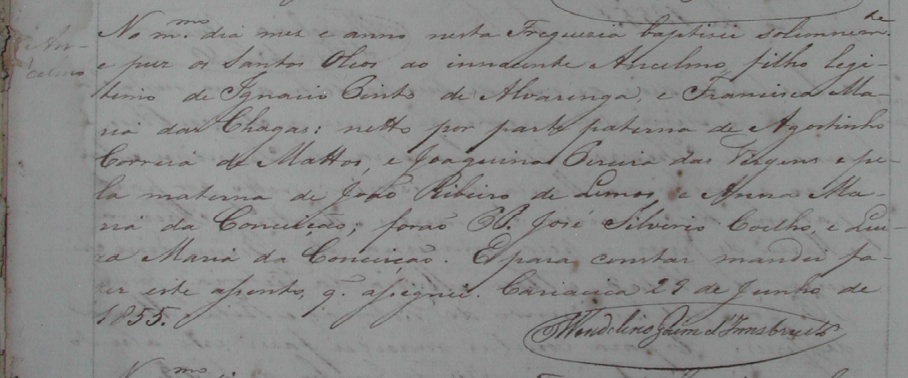 An-
celmo
No m.mo dia mez e anno nesta Freguezia baptizei solemnem.te
e puz os Santos Oleos ao innocente Ancelmo, filho legi-
timo de Ignacio Pinto de Alvarenga, e Francisca Ma-
ria das Chagas: netto por parte paterna de Agostinho
Correia de Mattos, e Joaquina Pereira das Virgens e pe-
la materna de João Ribeiro de Lemos, e Anna Ma-
ria da Conceição; forão P.P. José Silverio Coelho, e Lui-
za Maria da Conceição. E para constar mandei fa-
zer este assento, q. assignei. Cariacica 29 de Junho de
1855.
Wendelino d'Innsbruck
No m.mo